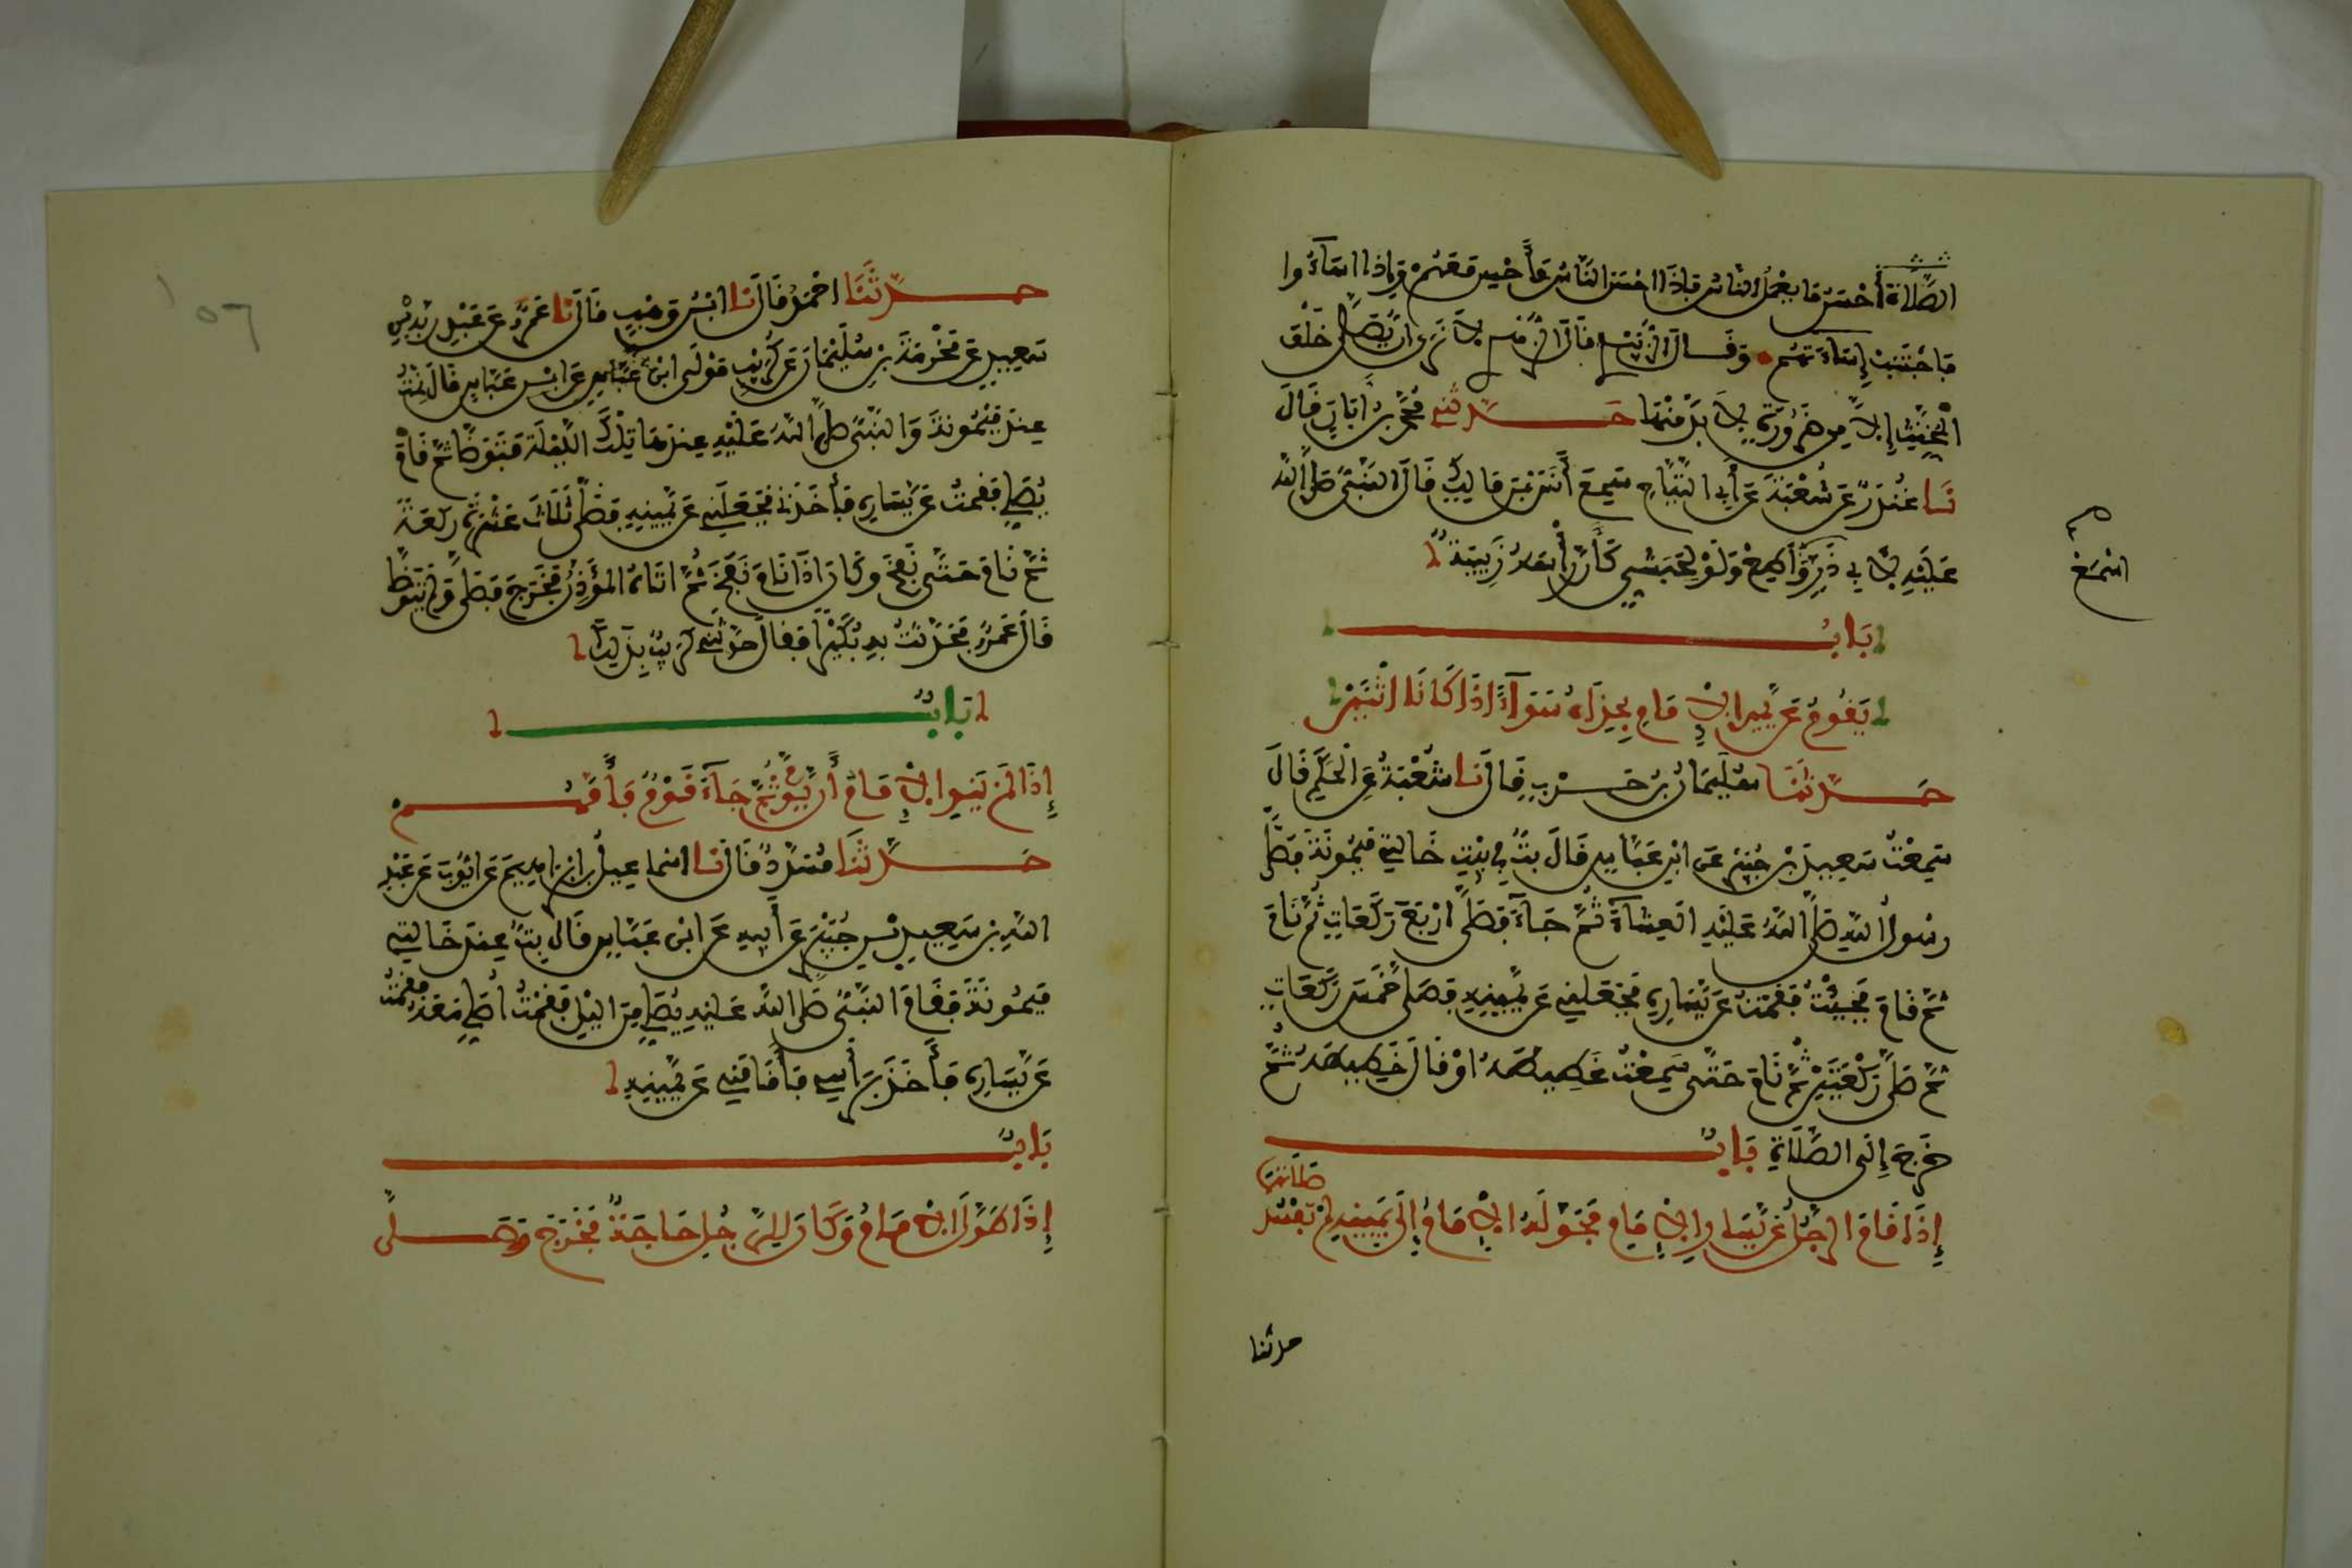 الصَّلَاةُ أَحْسَنُ مَا يَعْمَلُ النَّاسُ فَإِذَا احْسَنَ النَّاسُ فَأَحْسِنْ مَعَهُمْ وَإِذَا اسَآءُوا
فَاجْتَنِبْ إِسَاءَتَهُمْ وَقَالَ الزُّبَيْدِيُّ قَالَ الزُّهْرِيُّ لَا نَرَى انْ يُّصَلَّى خَلْفَ
الْمُخَنَّثِ إِلَّا مِن ضَرُورَةٍ لَا بُدَّ مِنْهَا حَدَّثَنِي مُحَمَّدُ بْنُ أَبَانَ قَالَ
نَا غُنْدَرٌ عَن شُعْبَةَ عَن أَبِي التَّيَّاحِ سَمِعَ أَنَسَ بْنَ مَالِكٍ قَالَ النَّبِيُّ صَلَّى اللَّهُ
عَلَيْهِ لِأَبِي ذَرٍّ وَأَطِعْ وَلَوْ لِحَبَشِيٍّ كَأَنَّ رَأْسَهُ زَبِيبَةٌ
اسْمَعْ
بَابُ
يَقُومُ عَن يَّمِينِ الْإِمَامِ بِحِذَائِهِ سَوَآءً اذَا كَانَا اثْنَيْنِ
حَدَّثَنَا سُلَيْمَانُ بْنُ حَرْبٍ قَالَ نَا شُعْبَةُ عَنِ الْحَكَمِ قَالَ
سَمِعْتُ سَعِيدَ بْنَ جُبَيْرٍ عَنِ ابْنِ عَبَّاسٍ قَالَ بِتُّ فِي بَيْتِ خَالَتِي مَيْمُونَةَ فَصَلَّى
رَسُولُ اللَّهِ صَلَّى اللَّهُ عَلَيْهِ الْعِشَآءَ ثُمَّ جَآءَ فَصَلَّى ارْبَعَ رَكَعَاتٍ ثُمَّ نَامَ
ثُمَّ قَامَ فَجِئْتُ فَقُمْتُ عَن يَّسَارِهِ فَجَعَلَنِي عَن يَّمِينِهِ فَصَلَّى خَمْسَ رَكَعَاتٍ
ثُمَّ صَلَّى رَكْعَتَيْنِ ثُمَّ نَامَ حَتَّى سَمِعْتُ غَطِيطَهُ اوْ قَالَ خَطِيطَهُ ثُمَّ
خَرَجَ إِلَى الصَّلَاةِ بَابٌ
إِذَا قَامَ الرَّجُلُ عَن يَّسَارِ الْإِمَامِ فَحَوَّلَهُ الْإِمَامُ إِلَى يَمِينِهِ لَمْ تَفْسُدْ صَلَاتُهُمَا
حدثنا
حَدَّثَنَا احْمَدُ قَالَ نَا ابْنُ وَهْبٍ قَالَ نَا عَمْرٌو عَن عَبْدِ رَبِّهِ بْنِ
سَعِيدٍ عَن مَخْرَمَةَ بْنِ سُلَيْمَانَ عَن كُرَيْبٍ مَوْلَى ابْنِ عَبَّاسٍ عَنِ ابْنِ عَبَّاسٍ قَالَ نِمْتُ
عِنْدَ مَيْمُونَةَ وَالنَّبِيُّ صَلَّى اللَّهُ عَلَيْهِ عِنْدَهَا تِلْكَ اللَّيْلَةَ فَتَوَضَّأَ ثُمَّ قَامَ
يُصَلِّي فَقُمْتُ عَن يَّسَارِهِ فَأَخَذَنِي فَجَعَلَنِي عَن يَّمِينِهِ فَصَلَّى ثَلَاثَ عَشْرَةَ رَكْعَةً
ثُمَّ نَامَ حَتَّى نَفَخَ وَكَانَ اذَا نَامَ نَفَخَ ثُمَّ اتَاهُ الْمُؤَذِّنُ فَخَرَجَ فَصَلَّى وَلَمْ يَتَوَضَّأْ
قَالَ عَمْرٌو فَحَدَّثْتُ بِهِ بُكَيْرًا فَقَالَ حَدَّثَنِي كُرَيْبٌ بِذَلِكَ
بَابٌ
إِذَا لَمْ يَنْوِ الْإِمَامُ أَن يَّؤُمَّ ثُمَّ جَآءَ قَوْمٌ فَأَمَّهُمْ
حَدَّثَنَا مُسَدَّدٌ قَالَ نَا اسْمَاعِيلُ بْنُ ابْرَاهِيمَ عَن ايُّوبَ عَن عَبْدِ
اللَّهِ بْنِ سَعِيدِ بْنِ جُبَيْرٍ عَن أَبِيهِ عَنِ ابْنِ عَبَّاسٍ قَالَ بِتُّ عِنْدَ خَالَتِي
مَيْمُونَةَ فَقَامَ النَّبِيُّ صَلَّى اللَّهُ عَلَيْهِ يُصَلِّي مِنَ الَّيْلِ فَقُمْتُ أُصَلِّي مَعَهُ فَقُمْتُ
عَن يَّسَارِهِ فَأَخَذَ بِرَأْسِي فَأَقَامَنِي عَن يَّمِينِهِ
بَابٌ
إِذَا طَوَّلَ الْإِمَامُ وَكَانَ لِلرَّجُلِ حَاجَةٌ فَخَرَجَ وَصَلَّى